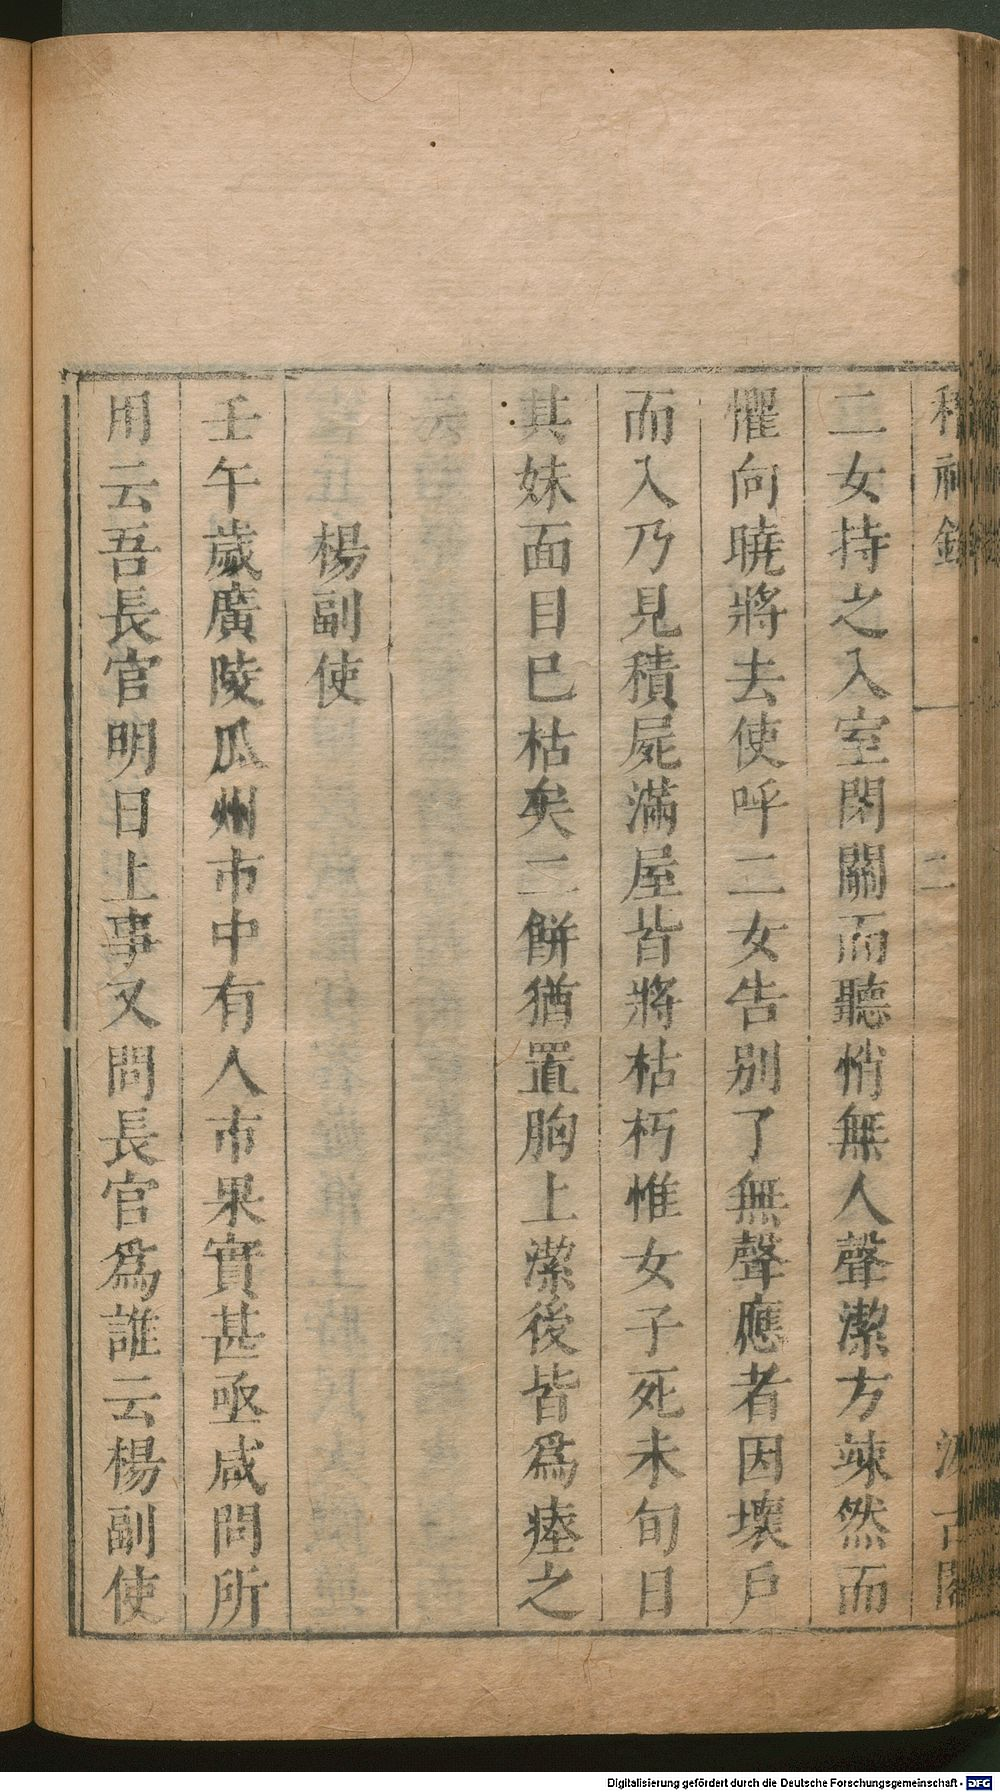 稽神錄
二
汲古閣
二女持之入室閉關而聽悄無人聲潔方竦然而
懼向曉將去使呼二女告別了無聲應者因壞戶
而入乃見積屍滿屋皆將枯朽惟女子死未旬日
其妹面目已枯矣二餅猶置胸上潔後皆爲瘞之
楊副使
壬午歲廣陵瓜州市中有人市果實甚亟咸問所
用云吾長官明日上事又問長官爲誰云楊副使
Digitalisierung gefördert durch die Deutsche Forschungsgemeinschaft - DFG